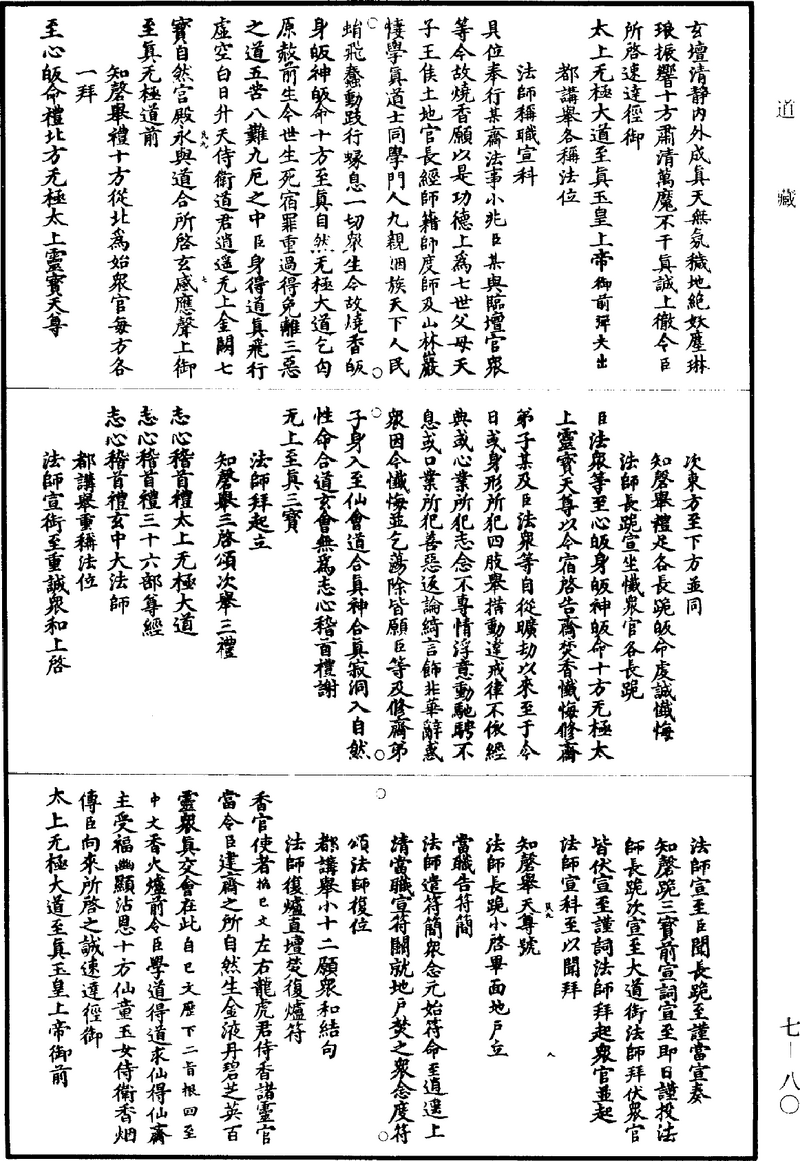 道藏
玄壇清静内外成真天無氛穢地絶妖塵琳
琅振響十方肅清萬魔不干真誠上徹令臣
所啓速達徑御
太上无極大道至真玉皇上帝御前彈夫出
都講舉各稱法位
法師稱職宣科
具位奉行某齋法事小兆臣某與臨壇官衆
等今故燒香願以是功德上爲七世父母天
子王侯土地官長經師籍師度師及山林巖
棲學真道士同學門人九親姻族天下人民
蛸飛蠢動跂行蠉息一切衆生今故燒香皈
身皈神皈命十方至真自然无極大道乞匄
原赦前生今世生死宿罪重過得免離三惡
之道五苦八難九厄之中臣身得道真飛行
虚空白日升天侍衛道君逍遥无上金闕七
寶自然宫殿永與道合所啓玄感應聲上御
至真无極道前
知磬舉禮十方從北爲始衆官每方各
一拜
至心皈命禮北方无極太上靈寶天尊
次東方至下方並同
知磬舉禮足各長跪皈命虔誠懺悔
法師長跪宣坐懺衆官各長跪
臣法衆等至心皈身皈神皈命十方无極太
上靈寶天尊以今宿啓告齋焚香懺悔修齋
弟子某及臣法衆等自從曠劫以來至于今
日或身形所犯四肢舉措動違戒律不依經
典或心業所犯志念不專情浮意動馳騁不
息或口業所犯善惡返論綺言飾非華辭惑
衆因今懺悔並乞蕩除皆願臣等及修齋弟
子身入至仙會道合真神合真寂洞入自然
性命合道玄會無爲志心稽首禮謝
无上至真三寶
法師拜起立
知磬舉三啓頌次舉三禮
志心稽首禮太上无極大道
志心稽首禮三十六部尊經
志心稽首禮玄中大法師
都講舉重稱法位
法師宣銜至重誠衆和上啓
法師宣至臣聞長跪至謹當宣奏
知磬跪三寶前宣詞宣至即日謹投法
師長跪次宣至大道銜法師拜伏衆官
皆伏宣至謹詞法師拜起衆官並起
法師宣科至以聞拜
知磬舉天尊號
法師長跪小啓畢面地户立
當職告符簡
法師遣符簡衆念元始符命至逍遥上
清當職宣符關就地户焚之衆念度符
頌法師復位
都講舉小十二願衆和結句
法師復爐直壇焚復爐符
香官使者左右龍虎君侍香諸靈官
當令臣建齋之所自然生金液丹碧芝英百
靈衆真交會在此
香火爐前令臣學道得道求仙得仙齋
主受福幽顯沾恩十方仙童玉女侍衛香烟
傳臣向來所啓之誠速達徑御
太上无極大道至真玉皇上帝御前
七－八〇